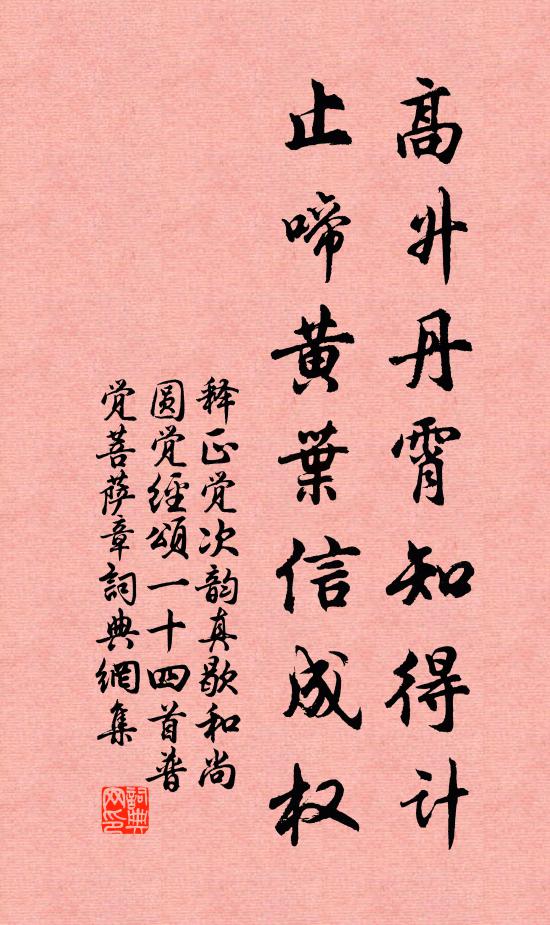 高升丹霄知得计
止啼黄葉信成权
释正觉次韵真歇和尚
圆觉经颂一十四首普
觉菩萨章詞典網集
詞典網印